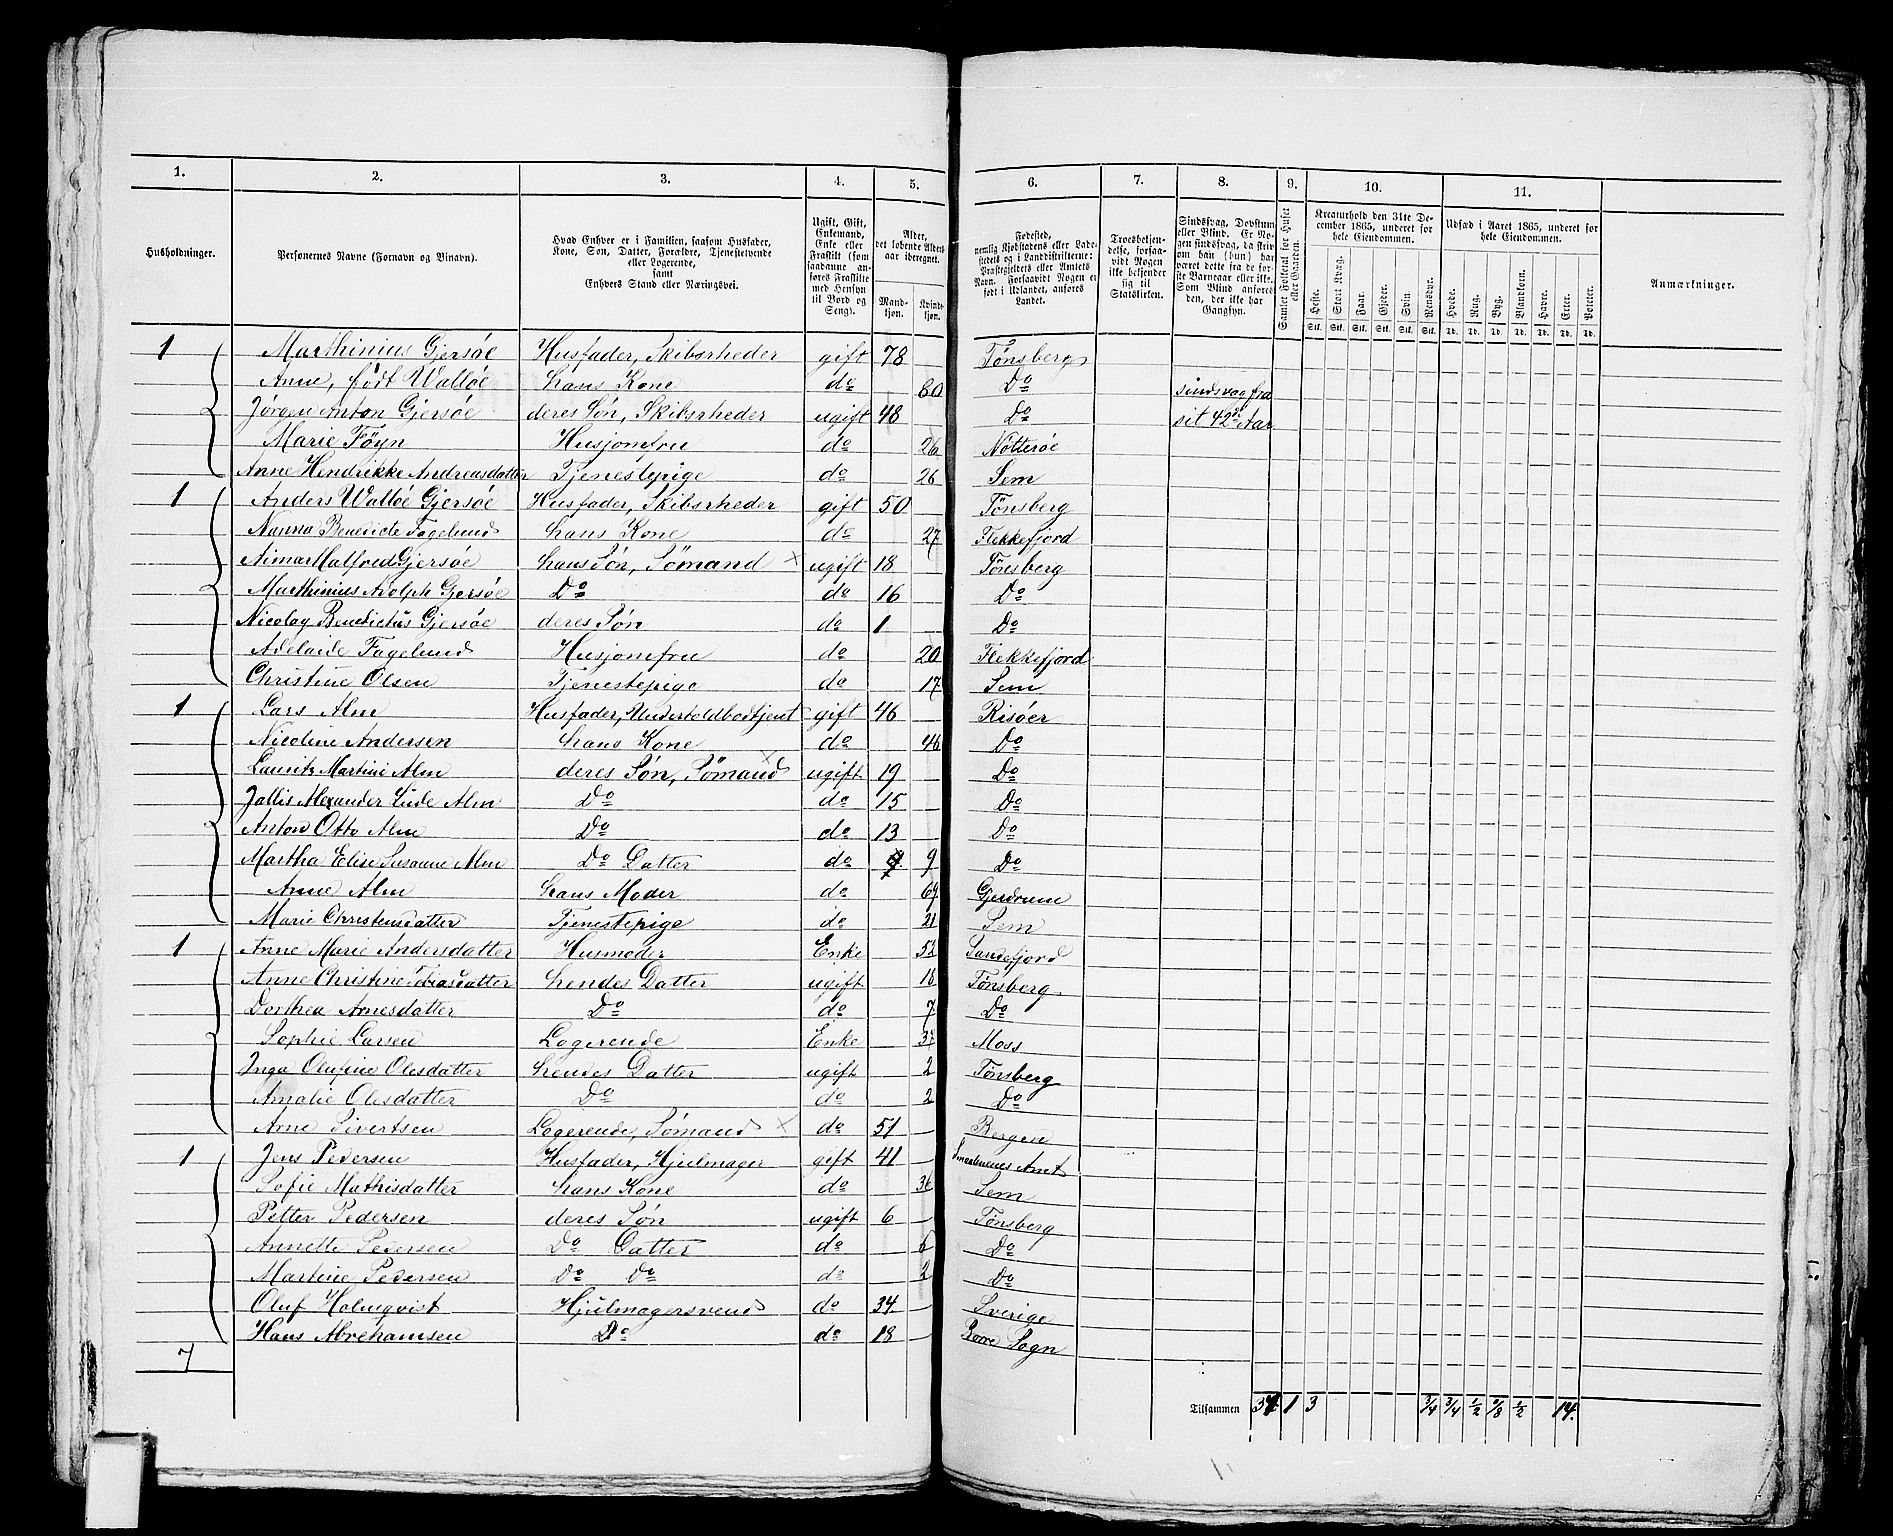 1. 2. 3. 4. 5. 6. 7. 8. 9. 10. 11.
Husholdninger. Personernes Navne (Fornavn og Binavn). Hvad Enhver er i Familien, saasom Husfader, Kone, Søn, Datter, Forældre, Tjenestetyende eller Logerende, samt Enhvers Stand eller Næringsvei. Ugift, Gift, Enkemand, Enke eller Fraskilt (som saadanne anføres Fraskilte med Hensyn til Bord og Seng). Alder, det løbende Alders-aar iberegnet. Mand-kjøn. Kvinde-kjøn. Fødested, nemlig Kjøbstadens eller Lade-stedets og i Landdistrikterne: Præstegjeldets eller Amtets Navn. Forsaavidt Nogen er født i Udlandet, anføres Landet. Troesbekjen-delse, forsaa-vidt Nogen ikke bekjender sig til Statskirken. Sindssvag, Døvstum eller Blind. Er No-gen sindssvag, da skriv om han (hun) har været dette fra de før-ste Barneaar eller ikke. Som Blind anføres den, der ikke har Gangsyn. Samlet Folketal for Huset eller Gaarden. Kreaturhold den 31te De-cember 1865, underet for hele Eiendommen. Udsæd i Aaret 1865, underet for hele Eiendommen. Anmærkninger.
Heste. Stort Kvæg. Faar. Gjeder. Svin. Rensdyr. Hvede. Rug. Byg. Blandkorn. Havre. Erter. Poteter.
Stk. Stk. Stk. Stk. Stk. Stk. Td. Td. Td. Td. Td. Td. Td.
1 Marthinius Gjersøe Husfader, Skibsrheder gift 78 Tønsberg
Anne, født Walløe hans Kone do 80 Do sindsvag fra
Jørgen Anton Gjersøe deres Søn, Skibsrheder ugift 48 Do sit 42de Aar
Marie Föyn Husjomfru do 26 Nötterøe
Anne Hendrikke Andreasdatter Tjenestepige do 26 Sem
1 Anders Walløe Gjersøe Husfader, Skibsrheder gift 50 Tønsberg
Nanna Benedicte Fagelund hans Kone do 27 Flekkefjord
Aimar Halfred Gjersøe hans Søn, Sömand × ugift 18 Tönsberg
Marthinius Adolph Gjersøe Do do 16 Do
Nicolay Benedictus Gjersøe deres Søn do 1 Do
Adelaide Fagelund Husjomfru do 20 Flekkefjord
Christine Olsen Tjenestepige do 17 Sem
1 Lars Alm Husfader, Underholdbodtjent gift 46 Risöer
Nicoline Andersen hans Kone do 46 Do
Lauritz Martini Alm deres Søn, Sømand × ugift 19 Do
Jallis Alexander Lude Alm Do do 15 Do
Anton Otto Alm Do do 13 Do
Martha Elise Susanne Alm Do Datter do 9 Do
Anne Alm hans Moder do 69 Gjerdrum
Marie Christensdatter Tjenestepige do 21 Sem
1 Anne Marie Andersdatter Husmoder Enke 52 Sandefjord
Anne Christine Tobiasdatter hendes Datter ugift 18 Tønsberg
Dorthea Arnesdatter Do do 7 Do
Sophie Larsen Logerende Enke 37 Moss
Inga Olufine Olesdatter hendes Datter ugift 2 Tönsberg
Amalie Olesdatter Do do 2 Do
Arne Sivertsen Logerende, Sømand × do 51 Bergen
1 Jens Pedersen Husfader, Hjulmager gift 41 Smaalenenes Amt
Sofie Mathisdatter hans Kone do 36 Sem
Petter Pedersen deres Søn ugift 6 Tönsberg
Annette Pedersen Do Datter do 5 Do
Martine Pedersen Do Do do 2 Do
Oluf Holmqvist Hjulmagersvend do 34 Sverige
Hans Abrehamsen Do do 18 Borre Sogn
7
Tilsammen 34 1 3 3/4 3/4 1/2 1/2 14.